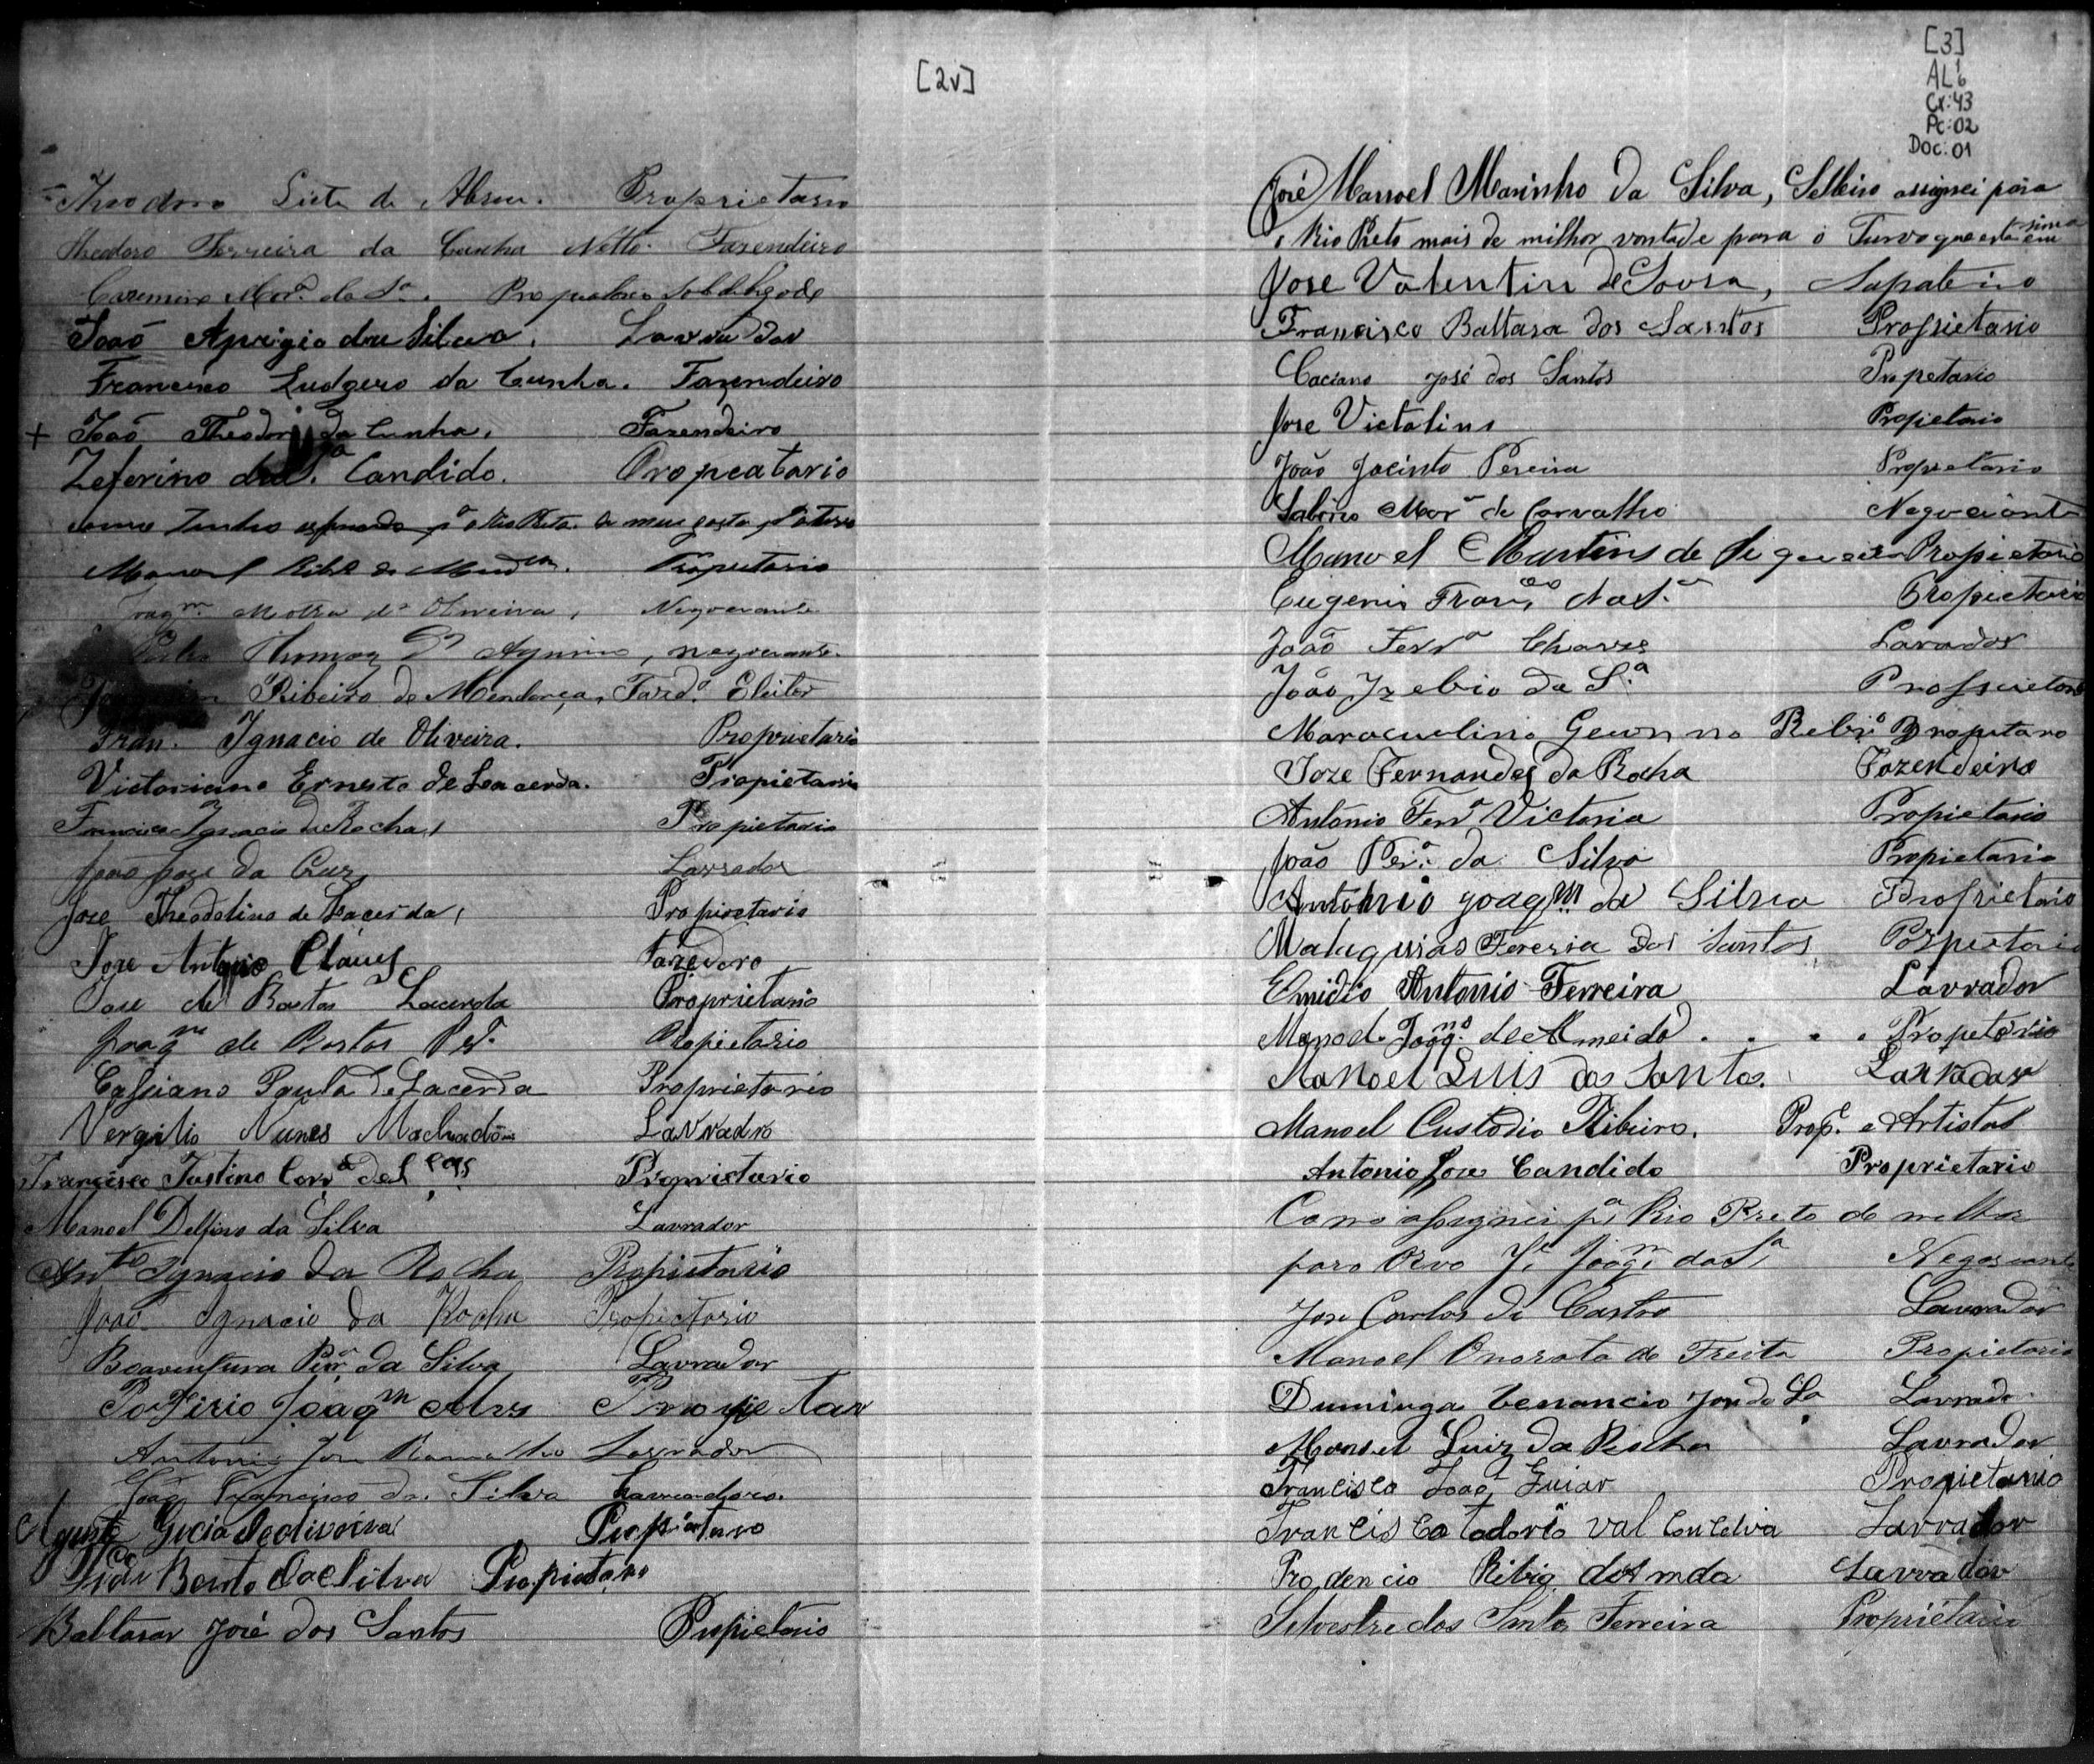 [2v]
Theodoro Leite de Abreu. Proprietario
Theodoro Ferreira da Cunha Netto. Fazendeiro
Casemiro Mor.ª da S.ª
João Aprigio da Silva. Lavrador
Francisco Ludgero da Cunha. Fazendeiro
+ João Theodoro da Cunha. Fazendeiro
Zeferino da S.ª Candido. Propeatario
Manoel Propietario
Joaq.m Motta d' Oliveira, Negociante
Thomaz d' Aquino, negociante.
Ribeiro de Mendonça, Fazd.º Eleitor
Fran. Ignacio de Oliveira. Proprietario
Victoriano Ernesto de Lacerda. Propietario
Francisco Ignacio da Rocha, Propietario
João José da Cruz Lavrador
Joze Theodolino de Lacerda, Propietario
Joze Antonio Claues Fazedoro
Jose de Bastos Lacerda Proprietario
Joaq.m de Bastos Propietario
Cassiano Paula de Lacerda Proprietario
Vergilio Nunes Machado Lavradro
Francisco Justino Corr.ª de Proprietario
Manoel Delfino da Silva Lavrador
Ant.to Ignacio da Rocha Propietario
João Ignacio da Rocha Propietario
Boaventura Per.ª da Silva Lavrador
Porfirio Joaq.m Alvs
Antonio José Ramalho Lavrador
João Francisco da Silva
Agusto deoliveira
Bento da Silva
Baltasar José dos Santos Propietario
[3]
AL 1 6
Cx: 43
Pc: 02
Doc: 01
José Manoel Marinho da Silva, Selleiro assignei para
o Rio Preto mais de milhor vontade para o Turvo que esta em sima
Jose Valentin de Sousa, Sapateiro
Francisco Baltasa dos Santos Proprietario
Caciano José dos Santos Propetario
Jose Victalino Propietario
João Jacinto Pereira Propietario
Sabino Mor.ª de Carvalho Negociante
Manoel Martins de Siqueira Propietario
Eugenio Fran.co da S.ª Propietario
João Ferr.ª Chaves Lavrador
João Izebio da S.ª Proprietario
Propetaro
Joze Fernandes da Rocha Fazendeiro
Antonio Ferr.ª Victoria Propietario
João Per.ª da Silva Propietario
Antonio Joaq.m da Silva Proprietario
Malaquias Fereria dos Santos
Emidio Antonio Ferreira Lavrador
Manoel Joaq.m de Almeida . . . . Propetario
Manoel Luis dos Santos. Lavrador
Manoel Custodio Ribeiro. Prop.e e Artista
Antonio Jose Candido Proprietario
Como assignei p.ª Rio Preto de melhor
para J.e Joaq.m da S.ª Negociante
Jose Carlos de Castro Lavrador
Manoel Onorato de Freita Propietario
Duminga Venancio Lavrado
Manoel Luiz da Rocha Lavrador
Francisco João Guiar Propietario
Francisco Lavrador
Prodencio Lavrador
Silvestre dos Santos Ferreira Propriétario